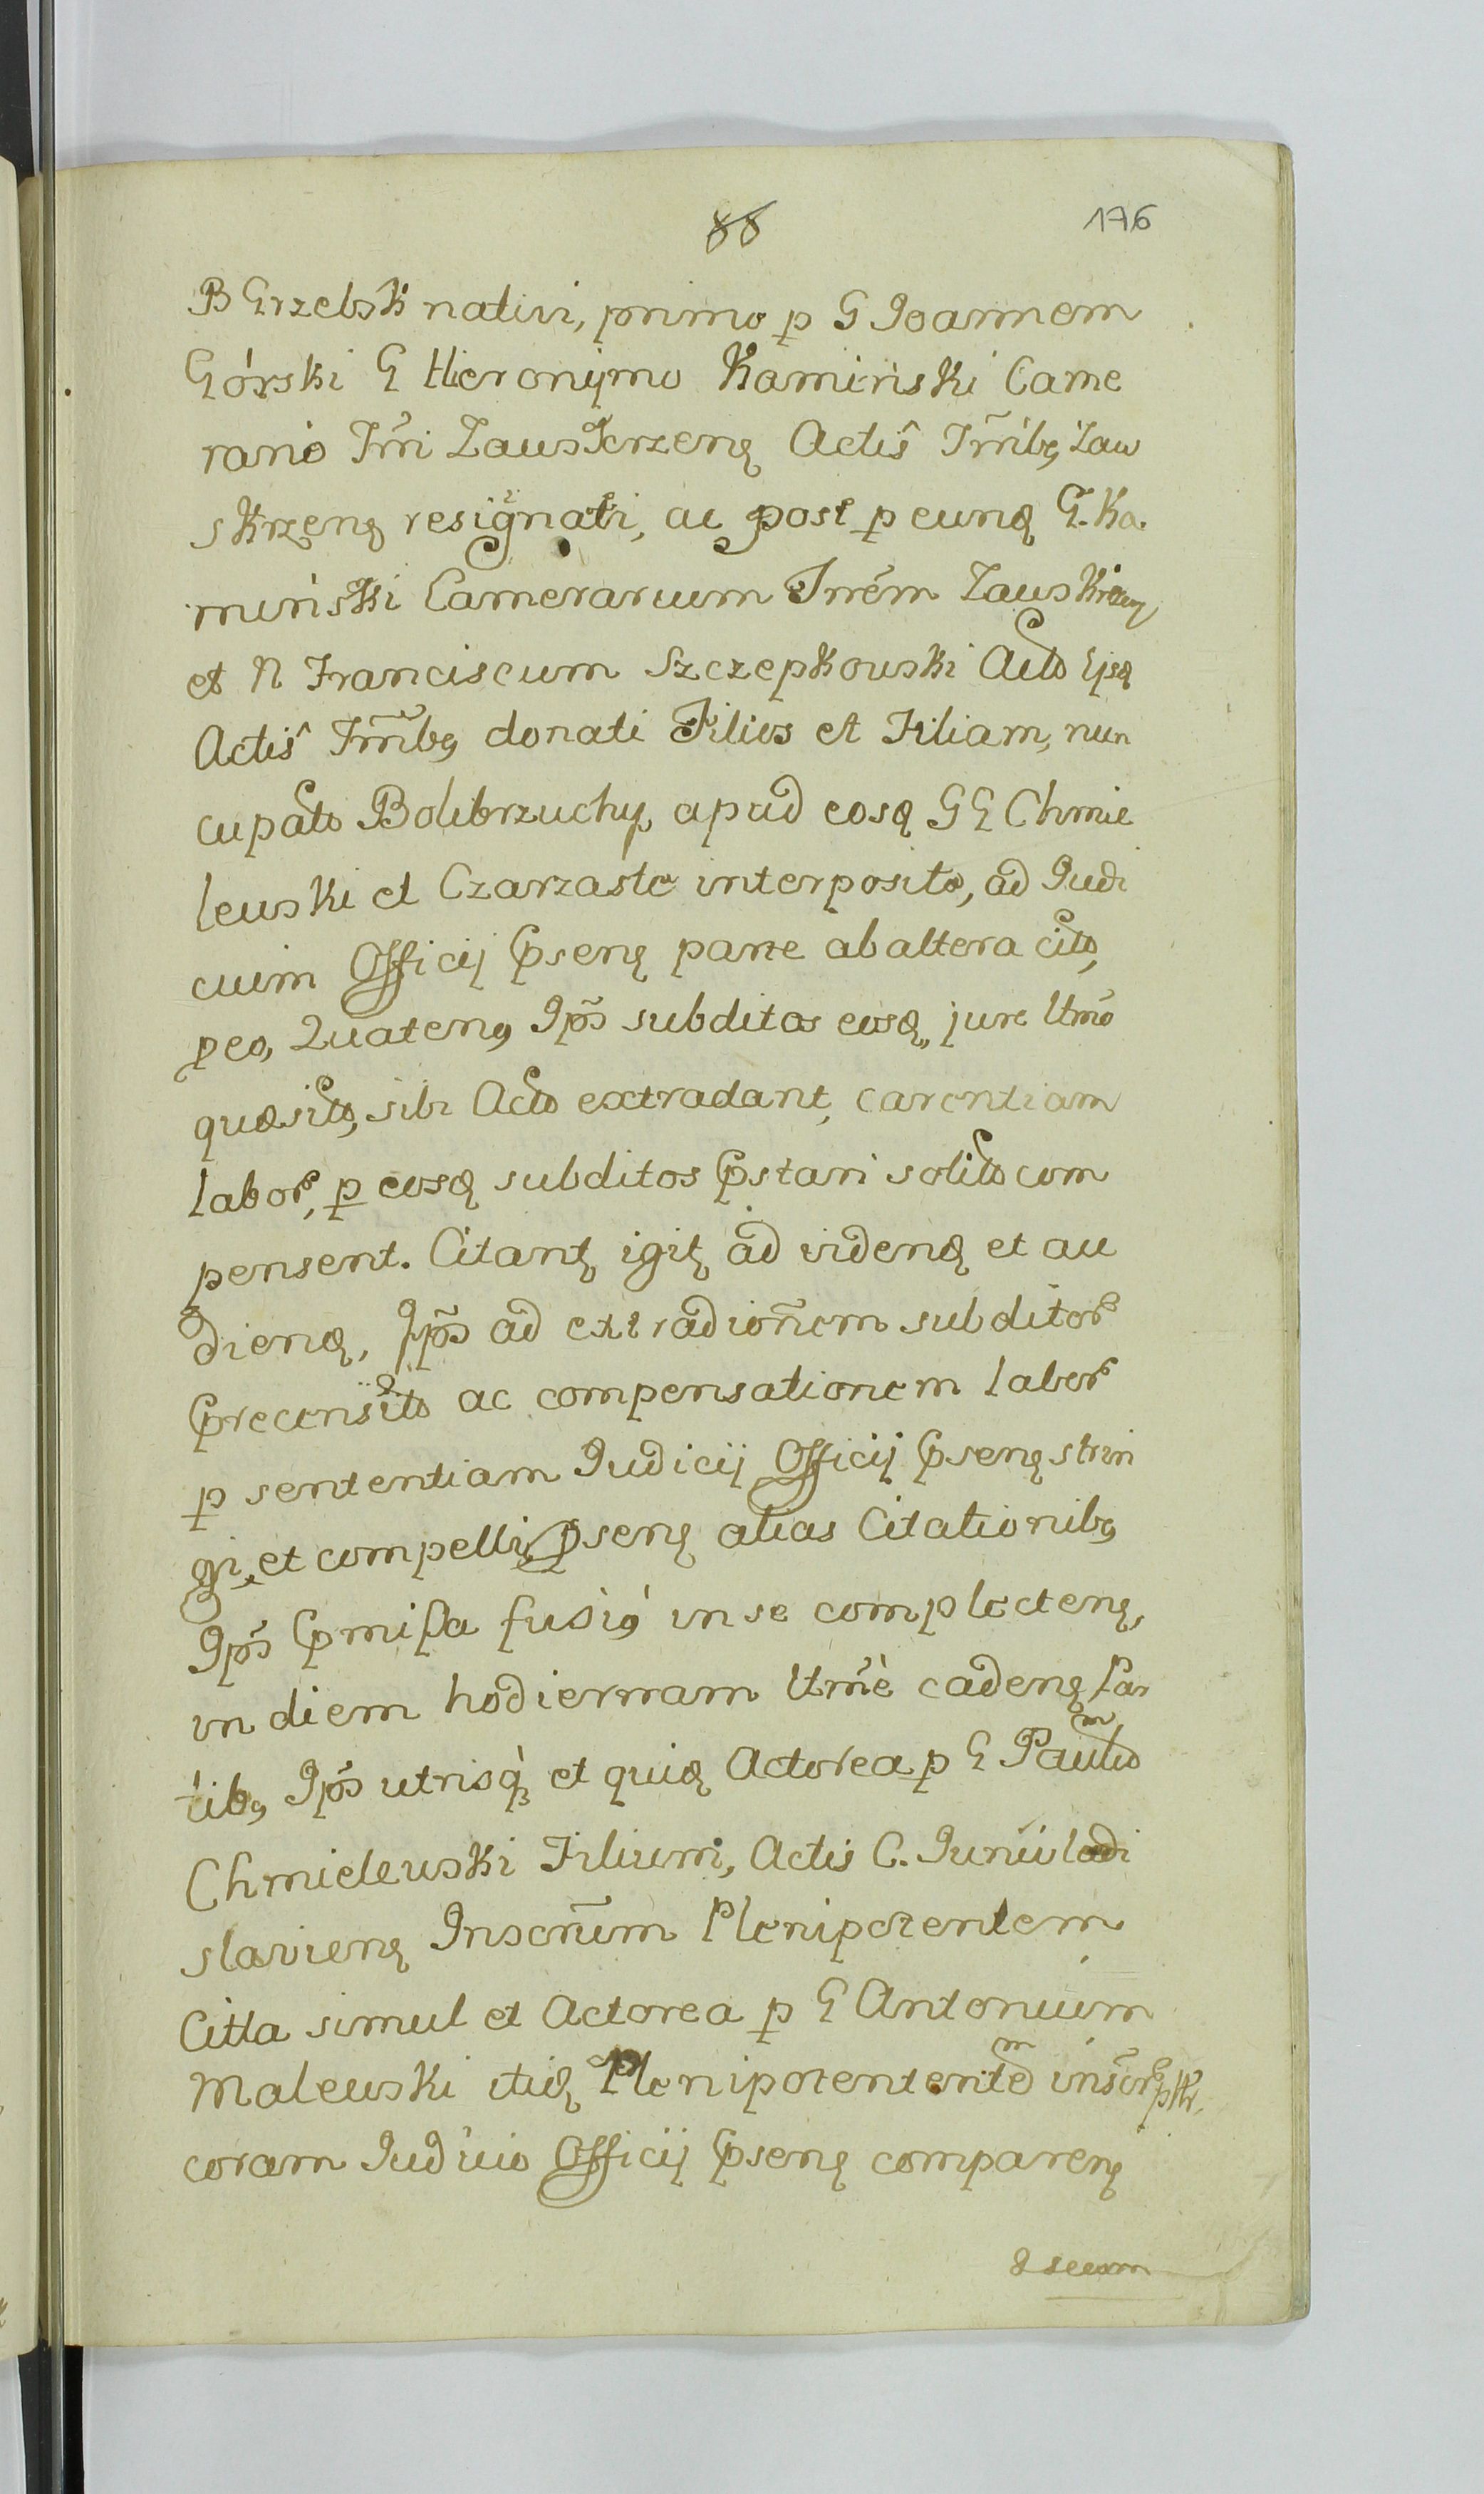 88
176
B Grzebsk nativi, primo p G Joannem
Górski G Hieronymo Kamiński Came
rario Trri Zawskrzenę Actis Trribꝯ Zaw
skrzenę resignati, ac post p eundę G. Ka.
miński Camerarium Trrem Zawskrzeṅ
et N Franciscum Szczepkowski Acto Ejsdę
Actis Trribꝯ donati Filios et Filiam, nun
cupato Bolibrzuchy, apud eosdę GG Chmie
lewski et Czarzaste interposito, ad Judi
cium Officij Pnsenę parte ab altera cito,
peo, Quatenꝯ Ips subditos eosdę, jure ltmo
quæsito, sibi Acto extradant, carentiam
labor, p eosdę subditos Pstari solito com
pensent. Citantꝛ igitꝛ ad videndę et au
diendę, Ips ad extradionem subditor
Precensito ac compensationem labor
p sententiam Judicij Officij Psenę strin
gi, et compelli, Psenę alias Citationibꝯ
Ips Pmissa fusiꝯ in se complectenę,
in diem hodiernam ltme cadenę Par
tibꝯ Ips utrisqꝫ et quidę Actorea p G Paulum
Chmielewski Filium, Actis C. Juniivladi
slavienę Inscrum Plenipotentem
Citta simul et Actorea p G Antonium
Malewski itidę Plenipotentem
coram Judicio Officij Psenę comparenę